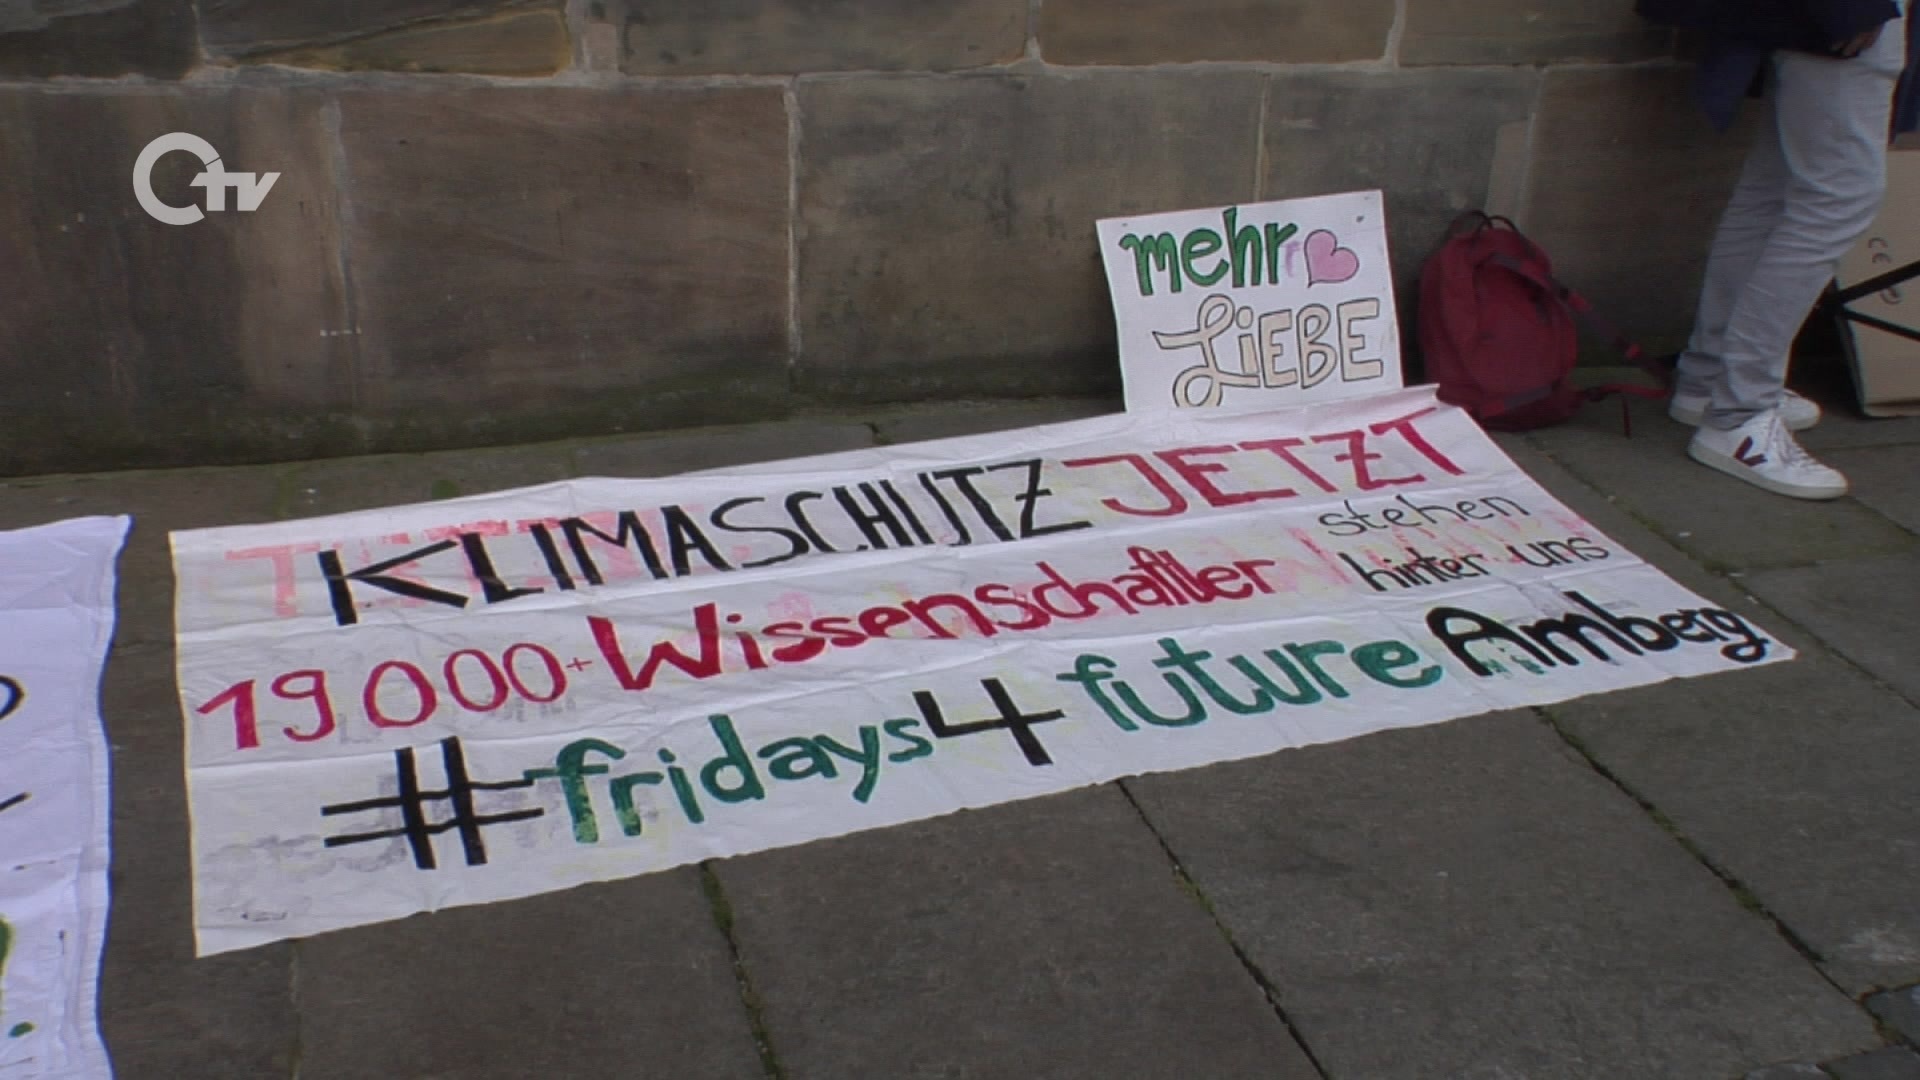 OTV
mehr
LiEBE
KLIMASCHUTZ JETZT
19000+ Wissenschaftler stehen
hinter uns
#fridays4future Amberg